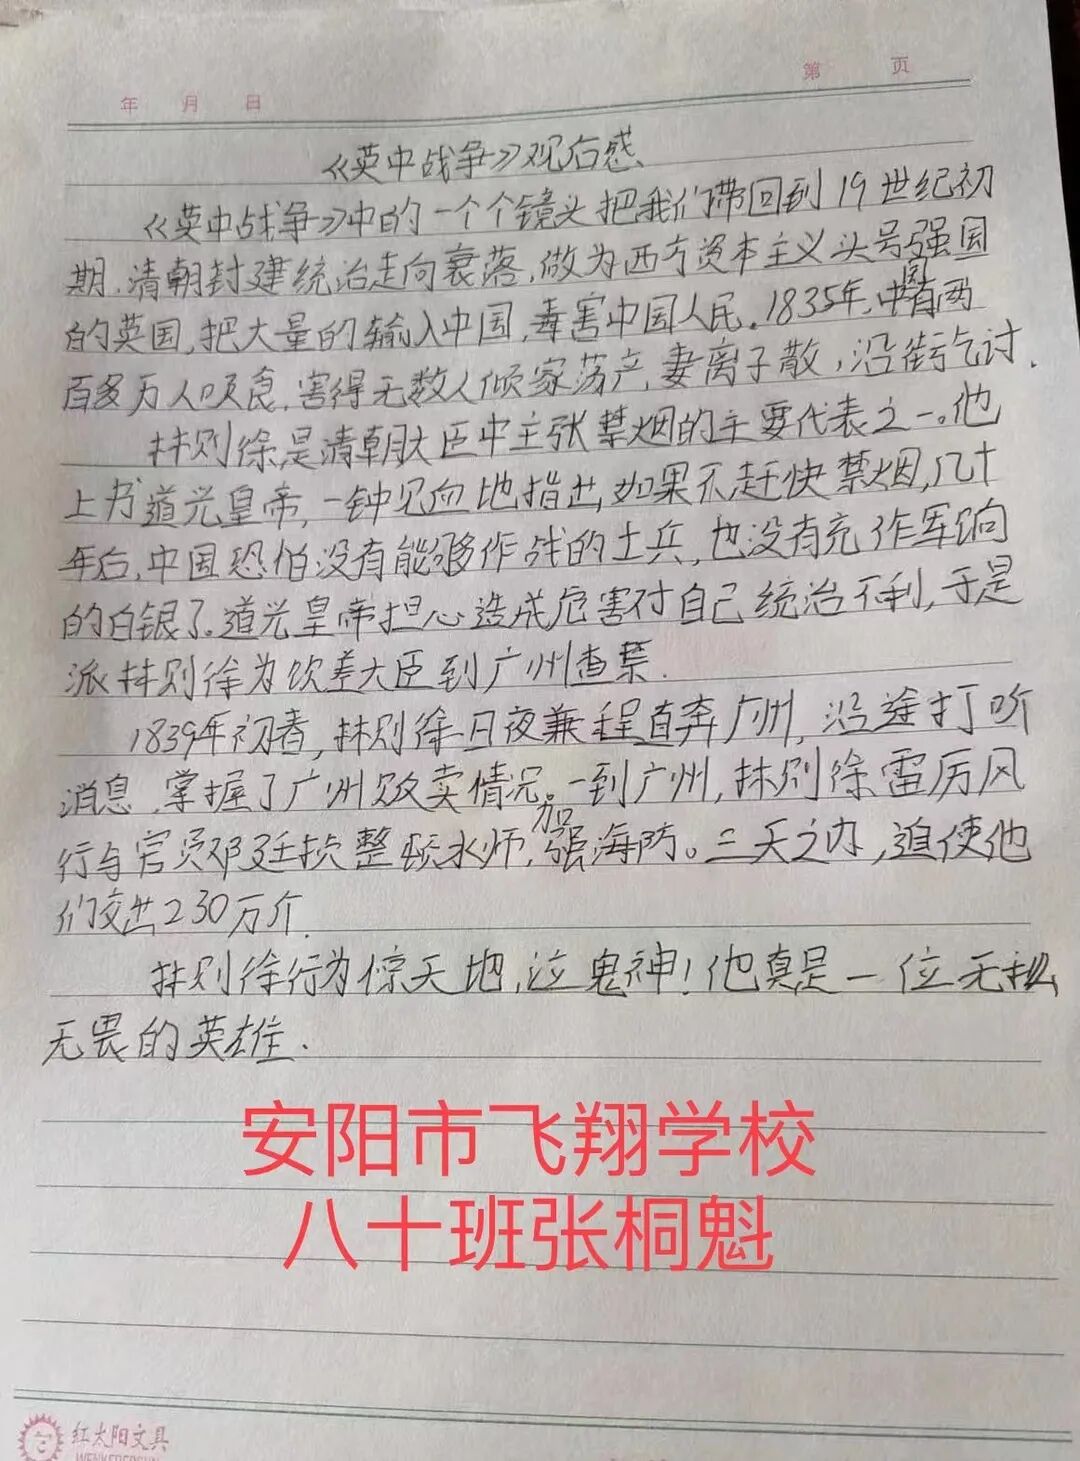 第 页
年 月 日
《英中战争》观后感
《英中战争》中的一个个镜头把我们带回到19世纪初
期.清朝封建统治走向衰落,做为西方资本主义头号强国
的英国,把大量的输入中国,毒害中国人民。1835年,中国有两
百多万人吸食,害得无数人倾家荡产,妻离子散,沿街乞讨.
林则徐,是清朝大臣中主张禁烟的主要代表之一。他
上书道光皇帝,一钟见血地指出,如果不赶快禁烟,几十
年后,中国恐怕没有能够作战的士兵,也没有充作军饷
的白银了.道光皇帝担心造成危害对自己统治不利,于是
派林则徐为钦差大臣到广州查禁.
1839年初春,林则徐日夜兼程直奔广州,沿途打听
消息,掌握了广州贩卖情况。一到广州,林则徐雷厉风
行与官员邓廷桢整顿水师,加强海防。三天之内,迫使他
们交出230万斤.
林则徐行为惊天地,泣鬼神!他真是一位无私
无畏的英雄.
安阳市飞翔学校
八十班张桐魁
红太阳文具